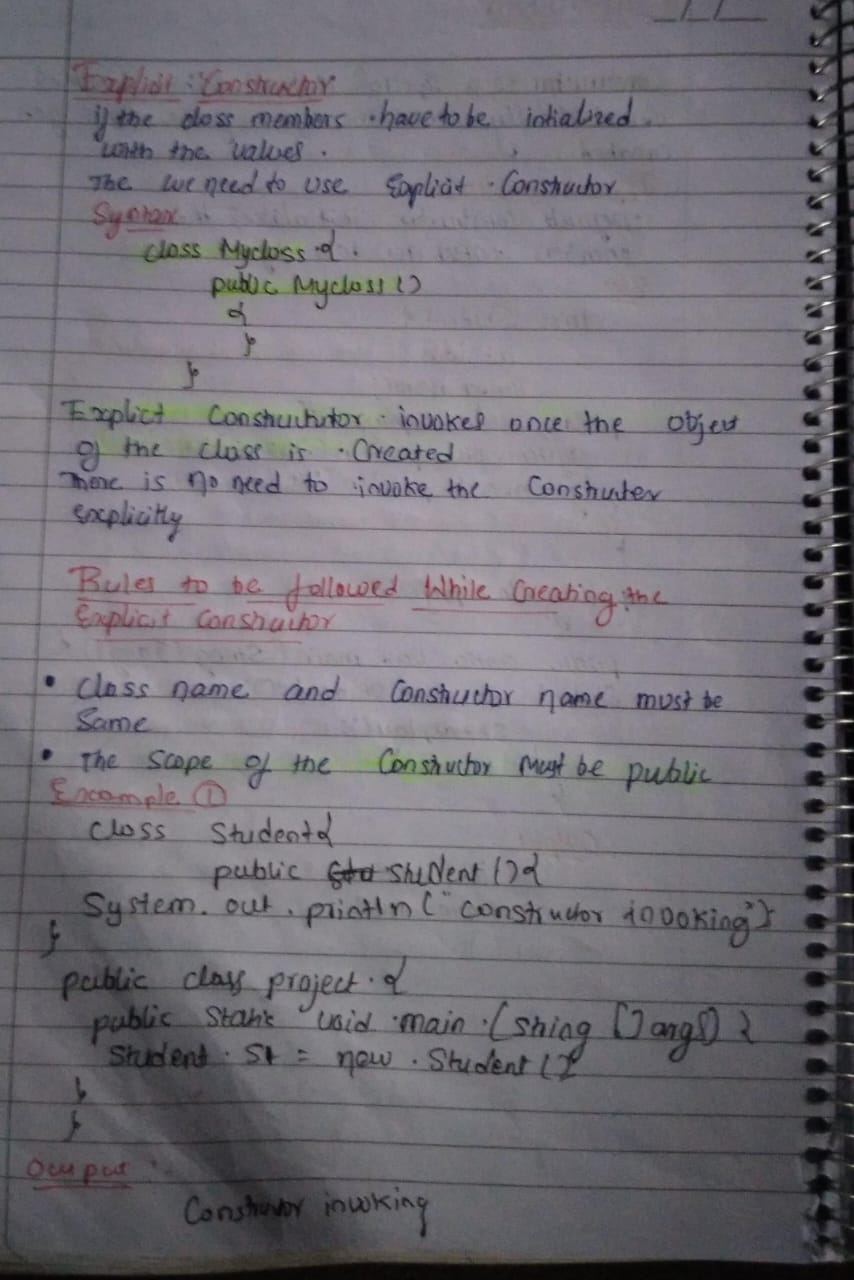 Explicit : Constructor
if the class members have to be intialized
with the values.
The we need to use Explicit Constructor
Syntax
class Myclass {
public Myclass ()
{
}
}
Explict Constructor invokes once the object
of the class is Created
There is no need to invoke the Constructer
explicitly
Rules to be followed While Creating the
Explicit Constructor
• Class name and Constructor name must be
Same
• The Scope of the Constructor Must be public
Example ①
Class Student {
public Student () {
System.out.println("constructor invoking")}
}
public class project {
public static void main (String [] args) {
Student St = new Student ();
}
}
Output :
Constructor invoking